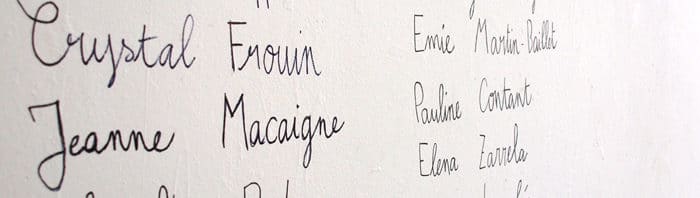 Crystal Frouin
Jeanne Macaigne
Emie Martin-Baillot
Pauline Contant
Elena Zarrela